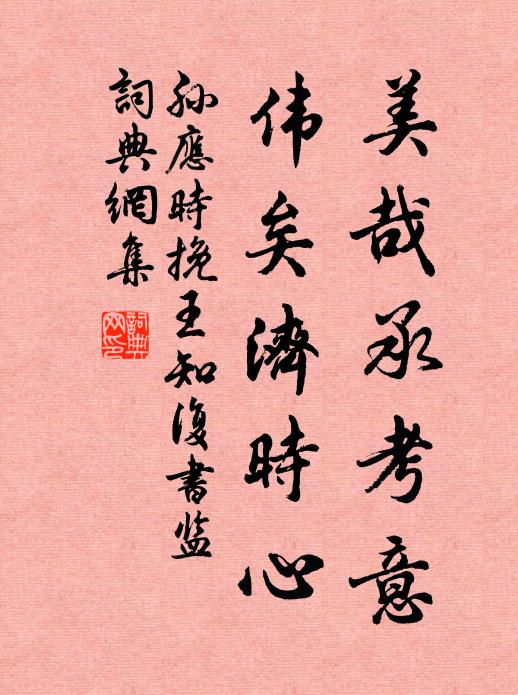 美哉承考意
伟矣濟時心
孙應時挽王知復書监
詞典網集
詞典
网印